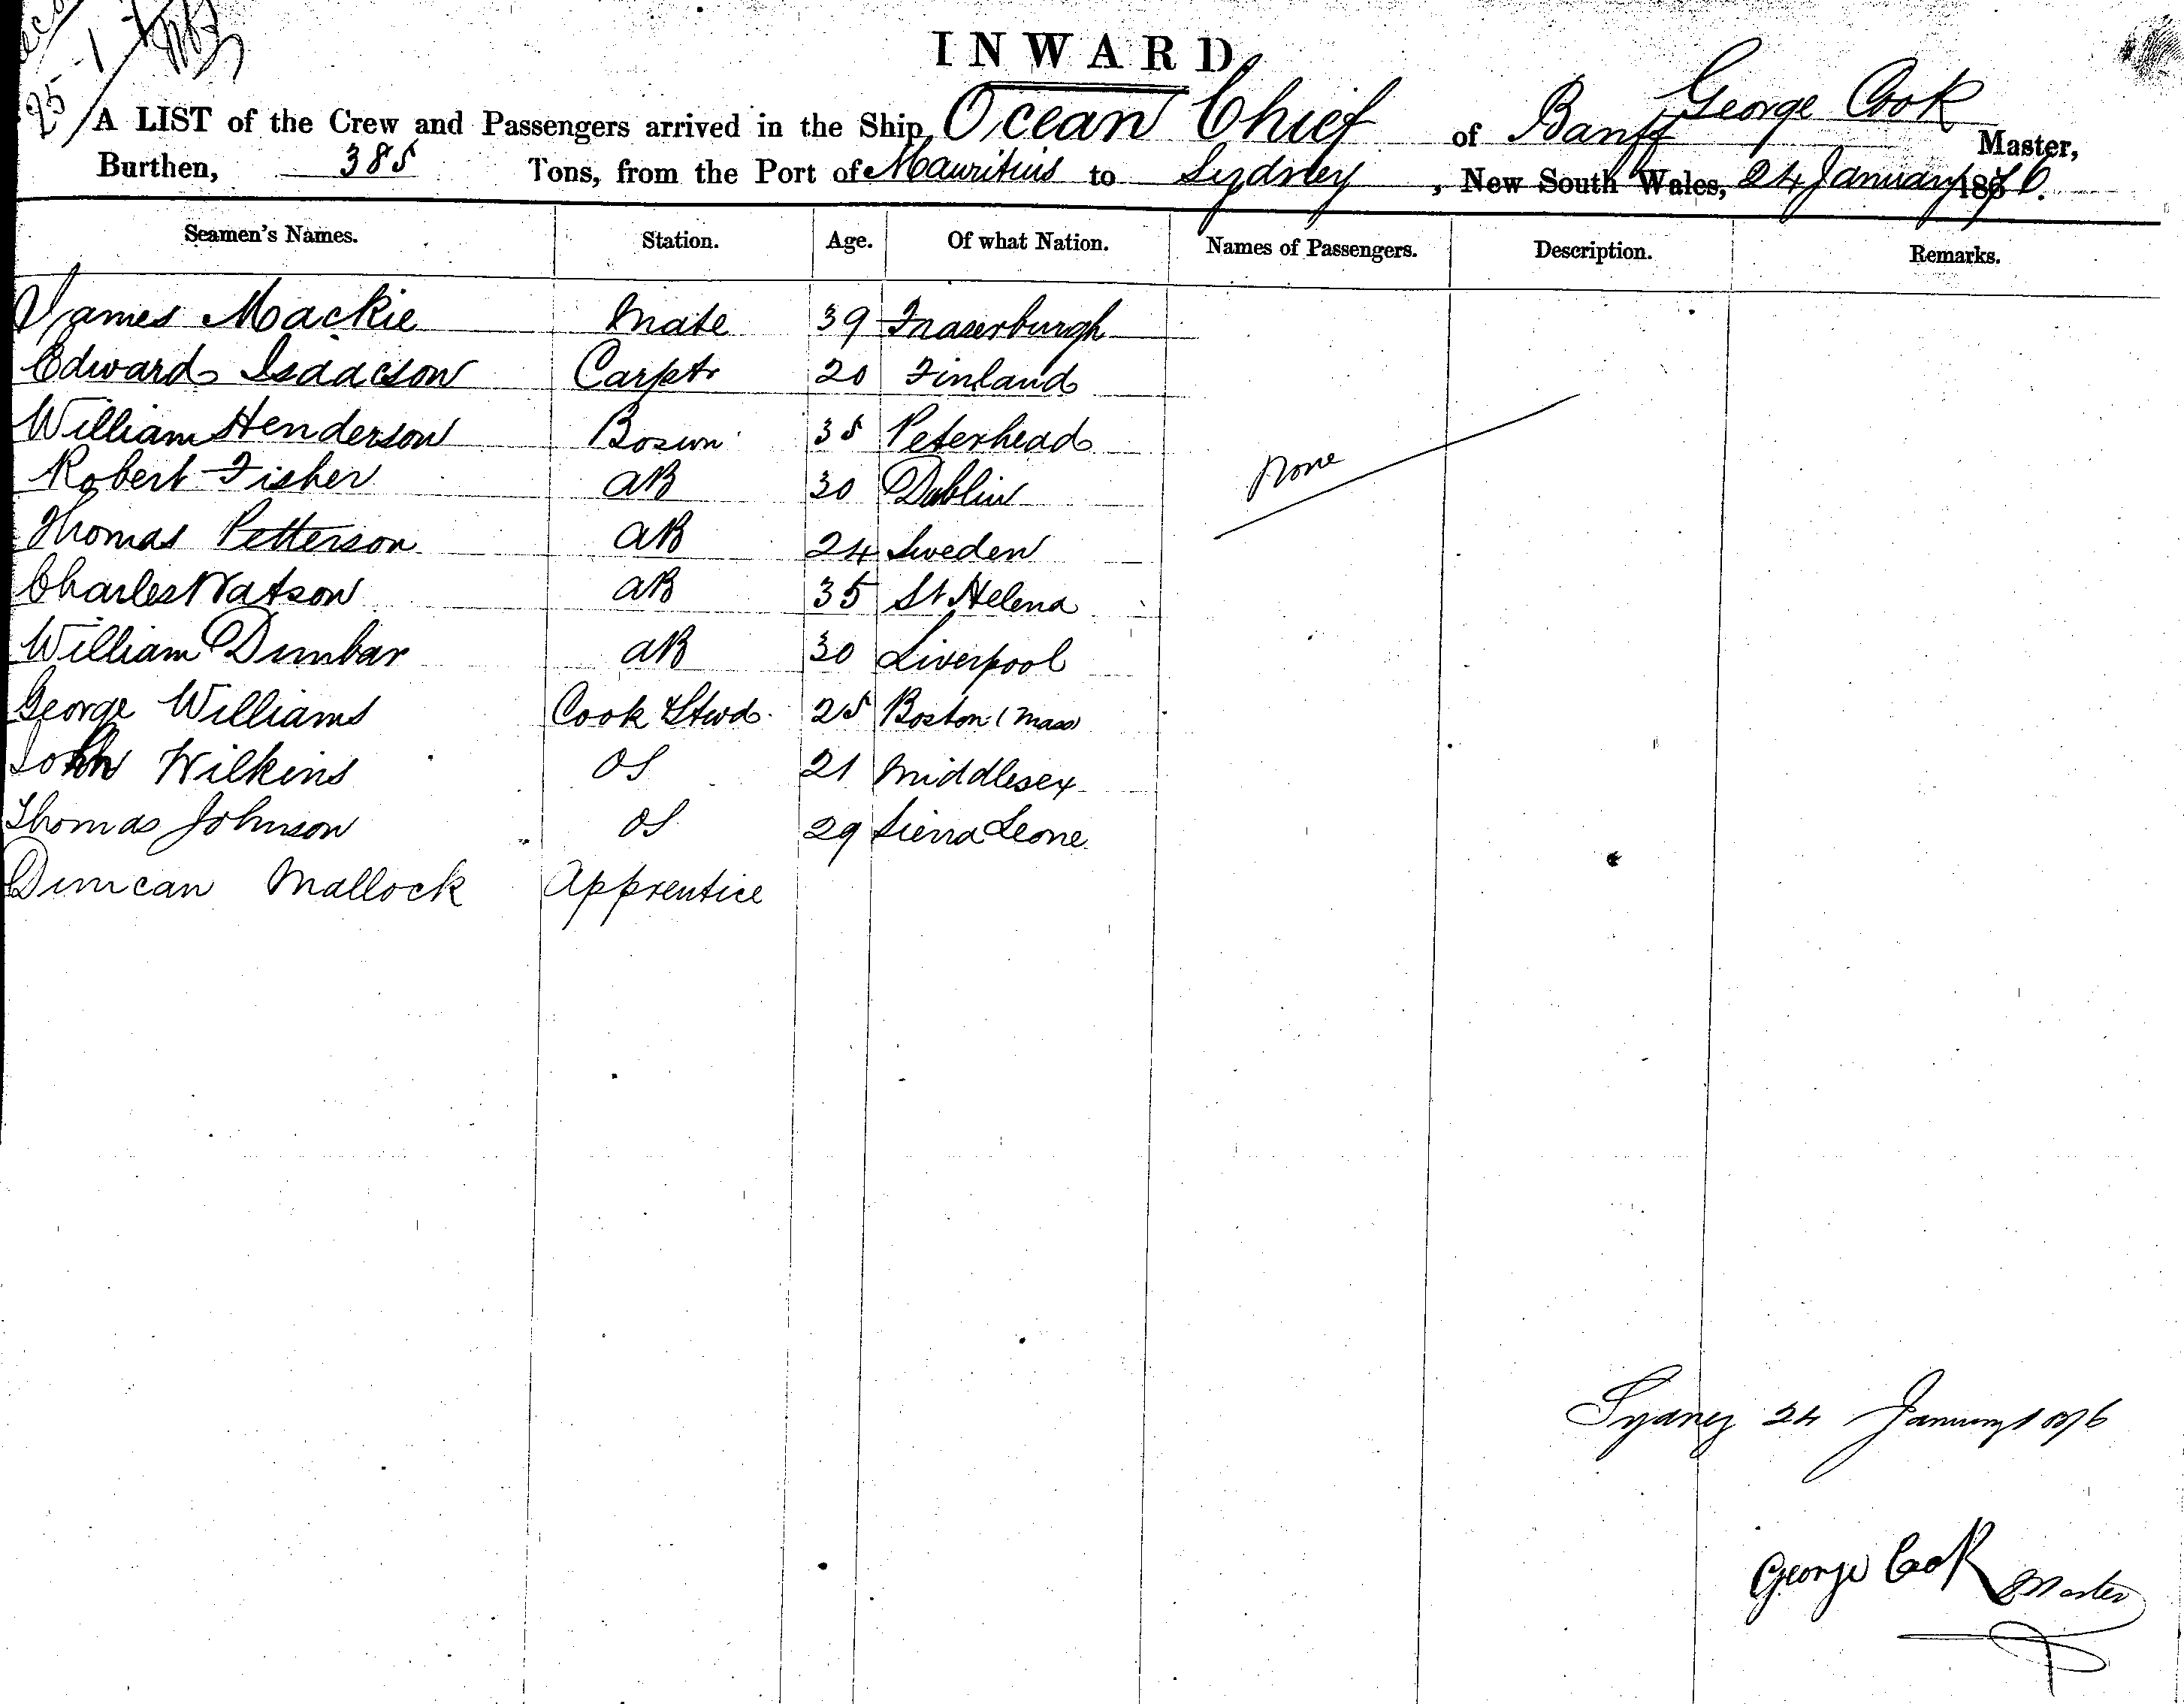 25-1
INWARD
A LIST of the Crew and Passengers arrived in the Ship Ocean Chief of Banff George Cook Master,
Burthen, 385 Tons, from the Port of Mauritius to Sydney, New South Wales, 24 January 1876.
Seamen's Names. Station. Age. Of what Nation. Names of Passengers. Description. Remarks.
James Mackie Mate 39 Fraserburgh
Edward Isaacson Carptr 20 Finland
William Henderson Bosun 35 Peterhead
none
Robert Fisher AB 30 Dublin
Thomas Petterson AB 24 Sweden
Charles Watson AB 35 St Helena
William Dunbar AB 30 Liverpool
George Williams Cook & Stwd. 25 Boston (Mass)
John Wilkins OS 21 Middlesex
Thomas Johnson OS 29 Sierra Leone
Duncan Mallock Apprentice
Sydney 24 January 1876
George Cook Master